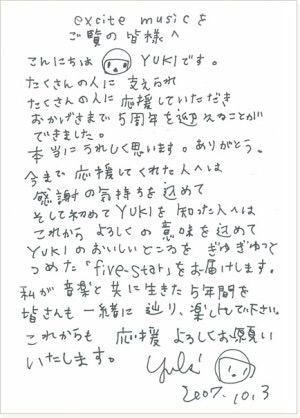 excite musicを
ご覧の皆様へ
こんにちは YUKIです。
たくさんの人に 支えられ
たくさんの人に 応援していただき
おかげさまで 5周年を迎えることが
できました。
本当にうれしく思います。ありがとう。
今まで 応援してくれた人へは
感謝の気持ちを込めて
そして初めてYUKIを 知った人へは
これから よろしくの 意味を込めて
YUKIのおいしいところを ぎゅぎゅっと
つめた「five-star」をお届けします。
私が 音楽と共に生きた5年間を
皆さんも一緒に 辿り、楽しんで下さい。
これからも 応援 よろしくお願い
いたします。 Yuki
2007.10.3